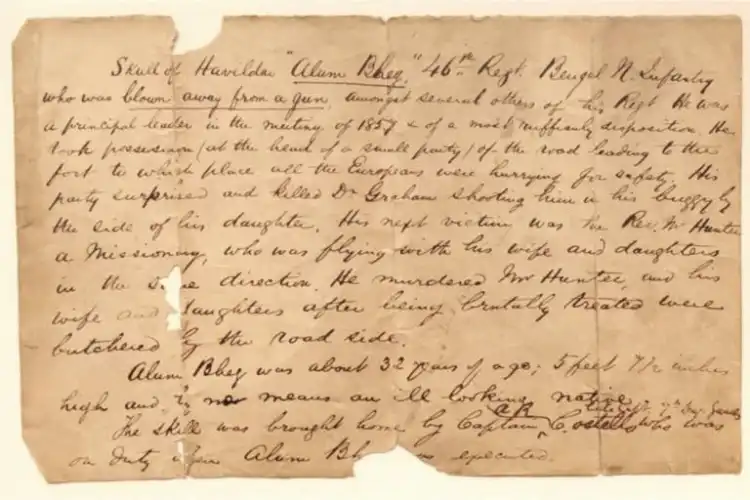 Skull of Havildar "Alum Bheg," 46th Regt. Bengal N. Infantry
who was blown away from a gun, amongst several others of his Regt. He was
a principal leader in the mutiny of 1857 & of a most ruffianly disposition. He
took possession (at the head of a small party) of the road leading to the
fort to which place all the Europeans were hurrying for safety. His
party surprised and killed Dr. Graham shooting him in his buggy by
the side of his daughter. His next victim was the Rev. Mr Hunter
a Missionary, who was flying with his wife and daughters
in the same direction. He murdered Mr Hunter, and his
wife and daughters after being brutally treated were
butchered by the road side.
Alum Bheg was about 32 years of age; 5 feet 7 1/2 inches
high and by no means an ill looking native
The skull was brought home by Captain AR Costello who was
on duty when Alum Bh was executed.